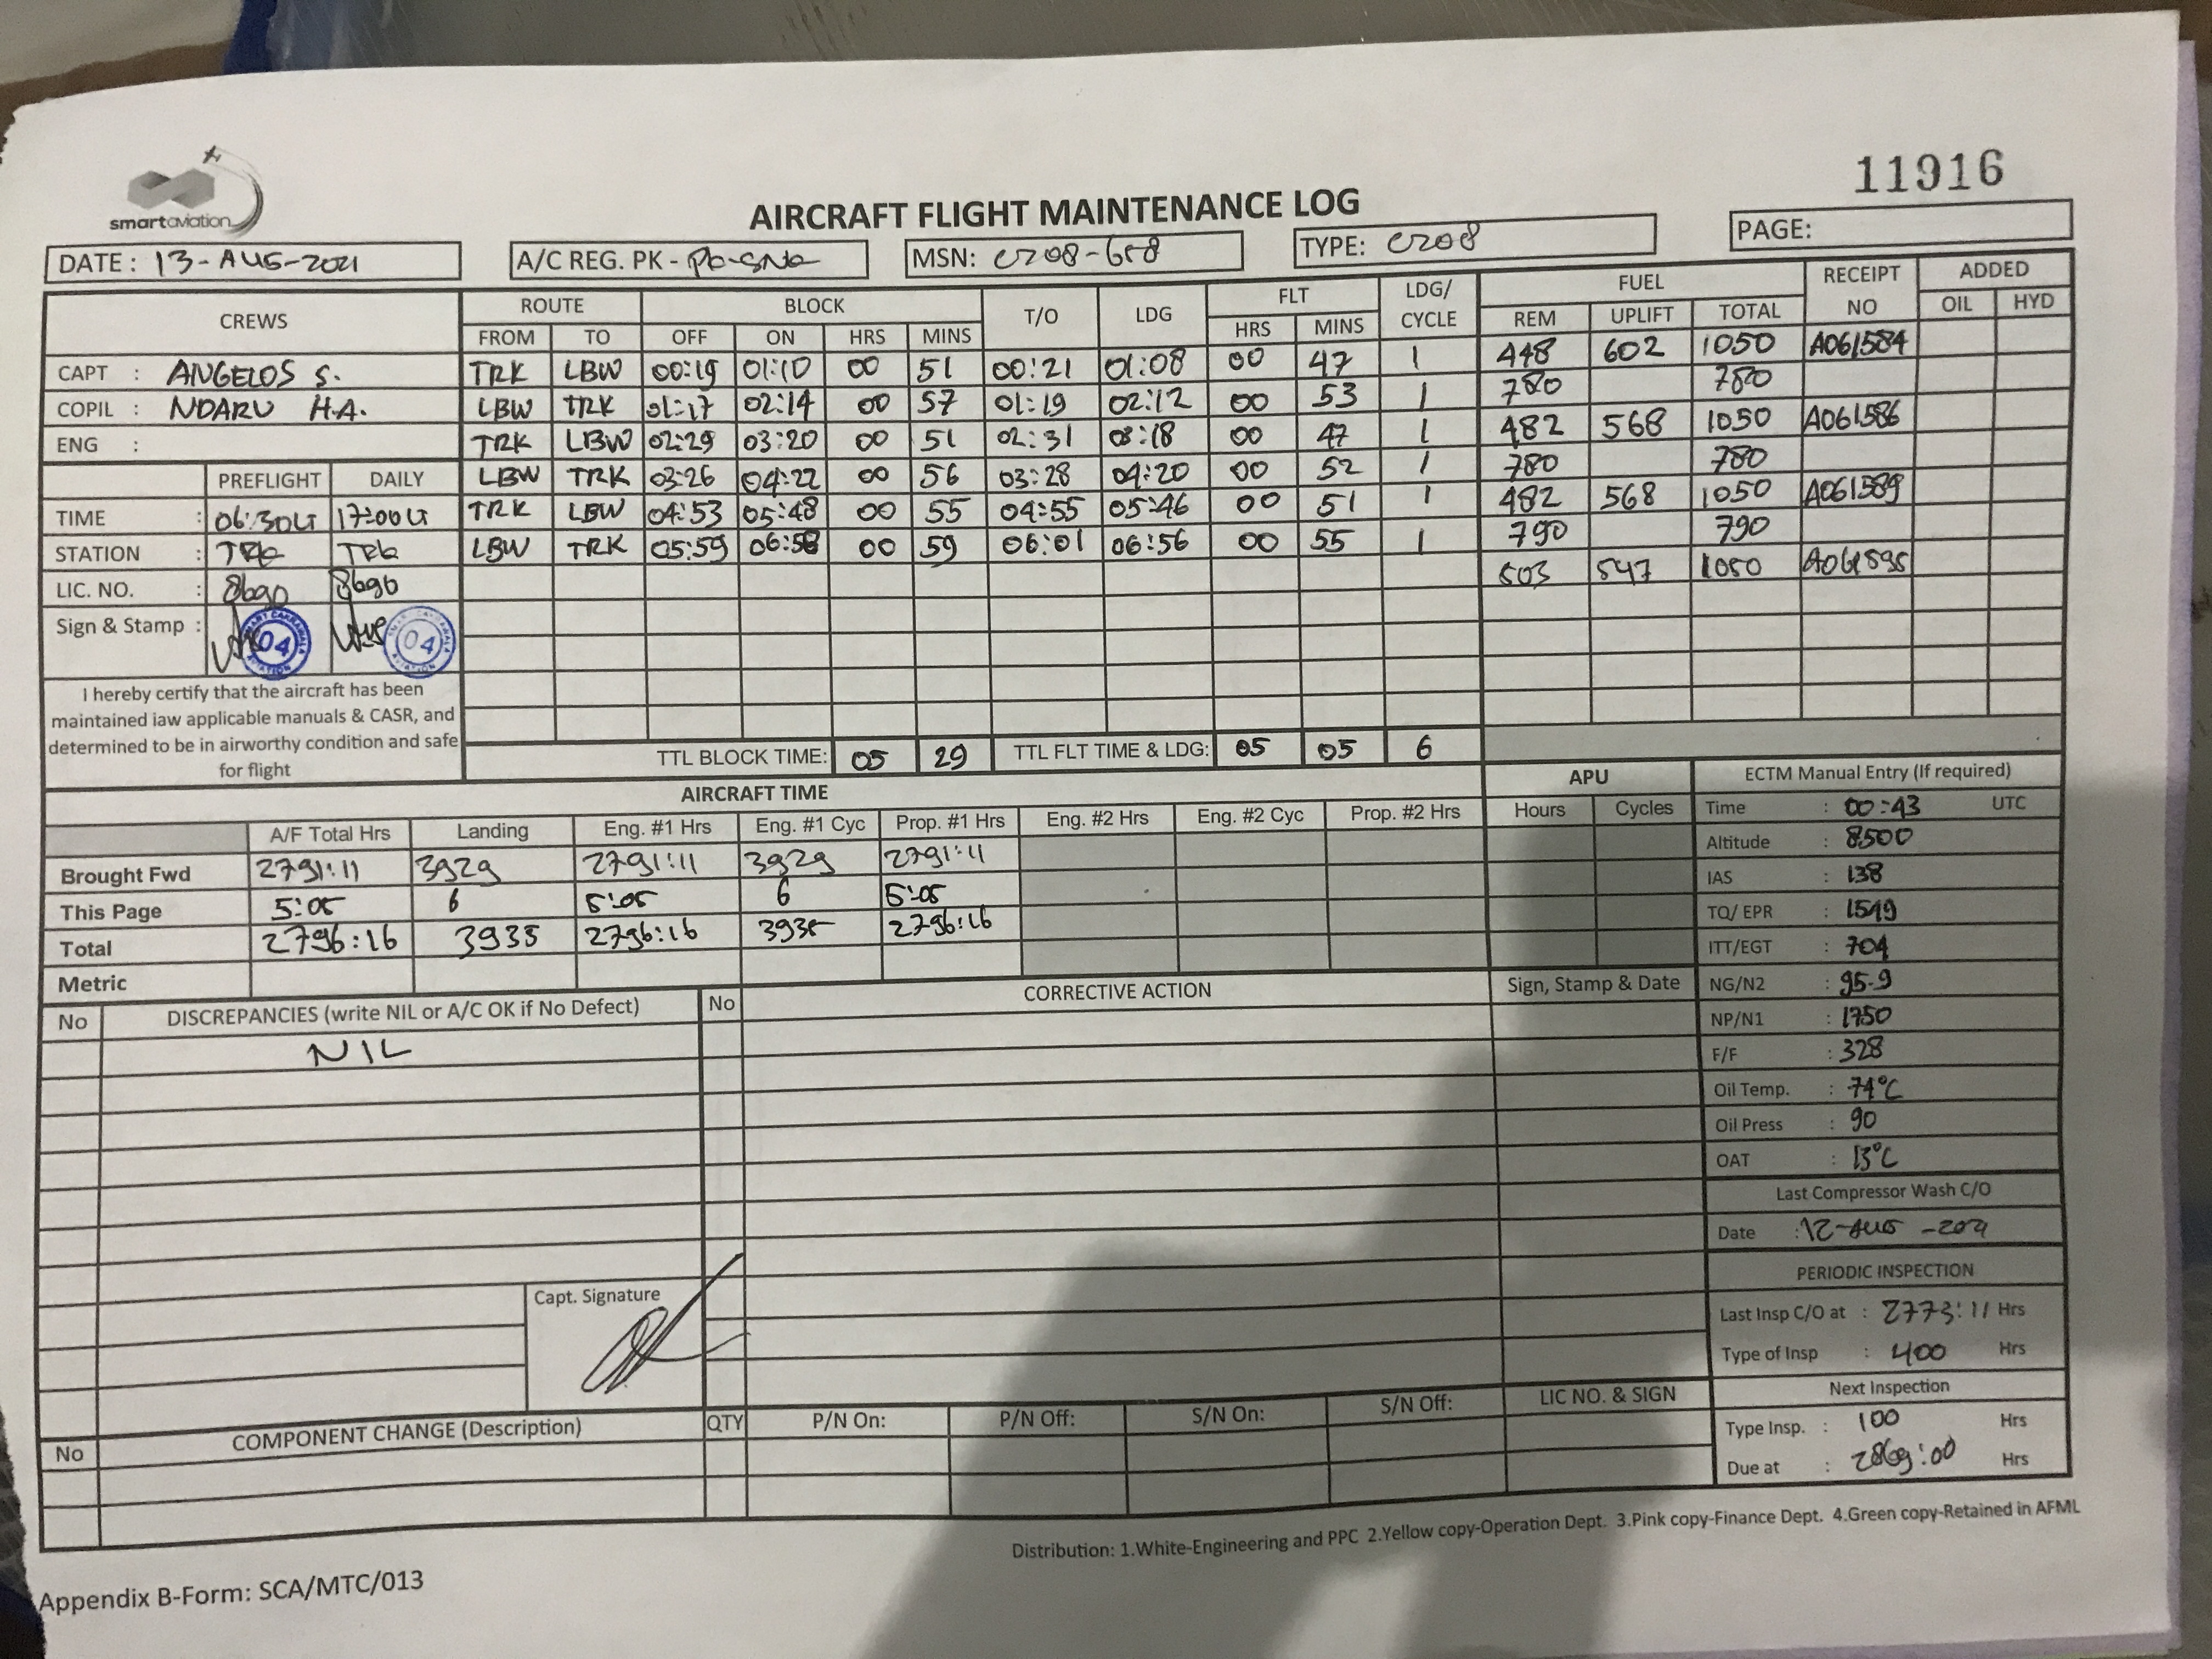 11916
smartaviation
AIRCRAFT FLIGHT MAINTENANCE LOG
DATE : 13-AUG-2021 A/C REG. PK - PK-SNK MSN: C208-658 TYPE: C208 PAGE:
CREWS ROUTE BLOCK T/O LDG FLT LDG/ CYCLE FUEL RECEIPT NO ADDED
FROM TO OFF ON HRS MINS HRS MINS REM UPLIFT TOTAL OIL HYD
CAPT : ANGELOS S. TRK LBW 00:19 01:10 00 51 00:21 01:08 00 47 1 448 602 1050 A061584
COPIL : NDARU H.A. LBW TRK 01:17 02:14 00 57 01:19 02:12 00 53 1 780 780
ENG : TRK LBW 02:29 03:20 00 51 02:31 03:18 00 47 1 482 568 1050 A061586
PREFLIGHT DAILY LBW TRK 03:26 04:22 00 56 03:28 04:20 00 52 1 780 780
TIME : 06:30 17:00 TRK LBW 04:53 05:48 00 55 04:55 05:46 00 51 1 482 568 1050 A061589
STATION : TRK TRK LBW TRK 05:59 06:58 00 59 06:01 06:56 00 55 1 790 790
LIC. NO. : 8690 8690 503 547 1050 A061595
Sign & Stamp : 04 04
I hereby certify that the aircraft has been
maintained iaw applicable manuals & CASR, and
determined to be in airworthy condition and safe
for flight
TTL BLOCK TIME: 05 29 TTL FLT TIME & LDG: 05 05 6
AIRCRAFT TIME APU ECTM Manual Entry (If required)
A/F Total Hrs Landing Eng. #1 Hrs Eng. #1 Cyc Prop. #1 Hrs Eng. #2 Hrs Eng. #2 Cyc Prop. #2 Hrs Hours Cycles
Brought Fwd 2791:11 3929 2791:11 3929 2791:11
This Page 5:05 6 5:05 6 5:05
Total 2796:16 3935 2796:16 3935 2796:16
Metric
Time : 00:43 UTC
Altitude : 8500
IAS : 138
TQ/ EPR : 1549
ITT/EGT : 704
NG/N2 : 95.9
NP/N1 : 1750
F/F : 328
Oil Temp. : 74°C
Oil Press : 90
OAT : 13°C
Last Compressor Wash C/O
Date : 12-AUG-2021
PERIODIC INSPECTION
Last Insp C/O at : 2773:11 Hrs
Type of Insp : 400 Hrs
Next Inspection
Type Insp. : 100 Hrs
Due at : 2869:00 Hrs
No DISCREPANCIES (write NIL or A/C OK if No Defect) No CORRECTIVE ACTION Sign, Stamp & Date
NIL
Capt. Signature
No COMPONENT CHANGE (Description) QTY P/N On: P/N Off: S/N On: S/N Off: LIC NO. & SIGN
Distribution: 1.White-Engineering and PPC 2.Yellow copy-Operation Dept. 3.Pink copy-Finance Dept. 4.Green copy-Retained in AFML
Appendix B-Form: SCA/MTC/013